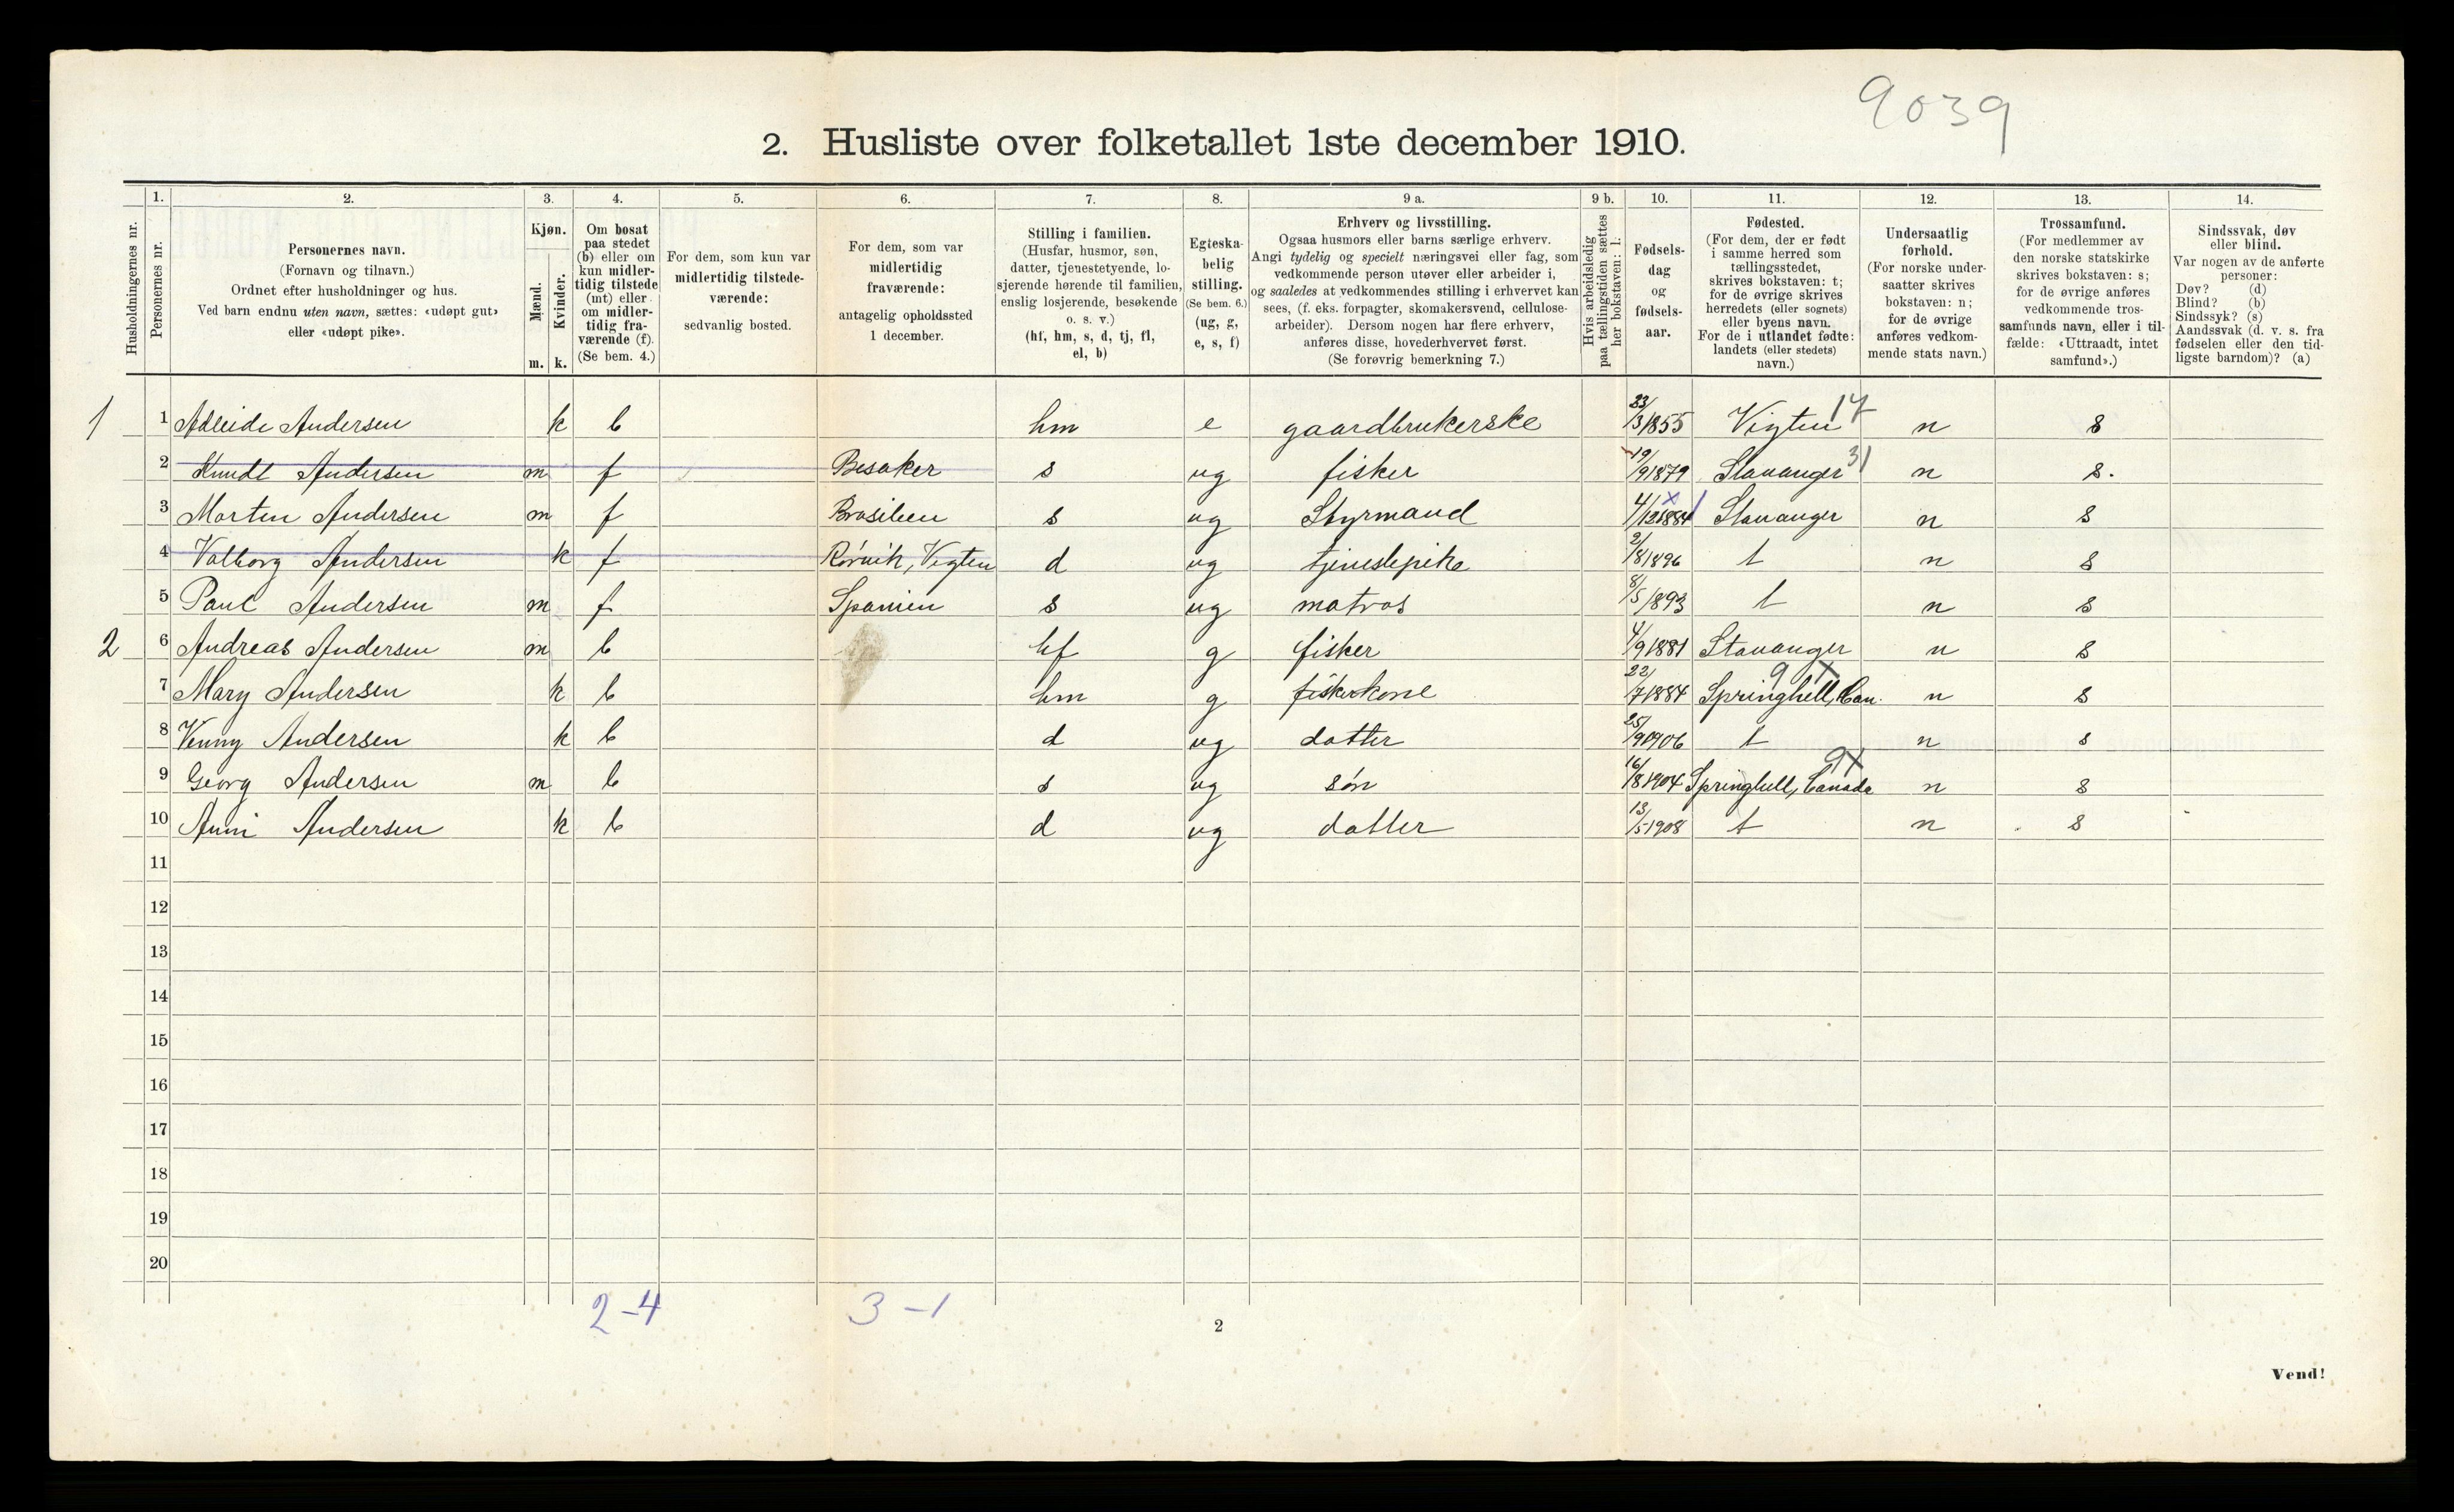 9039
2. Husliste over folketallet 1ste december 1910.
Husholdningernes nr.
1. Personernes nr.
2. Personernes navn.
(Fornavn og tilnavn.)
Ordnet efter husholdninger og hus.
Ved barn endnu uten navn, sættes: «udøpt gut»
eller «udøpt pike».
3. Kjøn.
Mænd. m.
Kvinder. k.
4. Om bosat
paa stedet
(b) eller om
kun midler-
tidig tilstede
(mt) eller
om midler-
tidig fra-
værende (f).
(Se bem. 4.)
5. For dem, som kun var
midlertidig tilstede-
værende:
sedvanlig bosted.
6. For dem, som var
midlertidig
fraværende:
antagelig opholdssted
1 december.
7. Stilling i familien.
(Husfar, husmor, søn,
datter, tjenestetyende, lo-
sjerende hørende til familien,
enslig losjerende, besøkende
o. s. v.)
(hf, hm, s, d, tj, fl,
el, b)
8. Egteska-
belig
stilling.
(Se bem. 6.)
(ug, g,
e, s, f)
9 a. Erhverv og livsstilling.
Ogsaa husmors eller barns særlige erhverv.
Angi tydelig og specielt næringsvei eller fag, som
vedkommende person utøver eller arbeider i,
og saaledes at vedkommendes stilling i erhvervet kan
sees, (f. eks. forpagter, skomakersvend, cellulose-
arbeider). Dersom nogen har flere erhverv,
anføres disse, hovederhvervet først.
(Se forøvrig bemerkning 7.)
9 b. Hvis arbeidsledig
paa tællingstiden sættes
her bokstaven: l.
10. Fødsels-
dag
og
fødsels-
aar.
11. Fødested.
(For dem, der er født
i samme herred som
tællingsstedet,
skrives bokstaven: t;
for de øvrige skrives
herredets (eller sognets)
eller byens navn.
For de i utlandet fødte:
landets (eller stedets)
navn.)
12. Undersaatlig
forhold.
(For norske under-
saatter skrives
bokstaven: n;
for de øvrige
anføres vedkom-
mende stats navn.)
13. Trossamfund.
(For medlemmer av
den norske statskirke
skrives bokstaven: s;
for de øvrige anføres
vedkommende tros-
samfunds navn, eller i til-
fælde: «Uttraadt, intet
samfund».)
14. Sindssvak, døv
eller blind.
Var nogen av de anførte
personer:
Døv? (d)
Blind? (b)
Sindssyk? (s)
Aandssvak (d. v. s. fra
fødselen eller den tid-
ligste barndom)? (a)
1 1 Adleide Andersen k b hm e gaardbrukerske 23/3 1855 Vigten 17 n s
2 Knudt Andersen m f Besaker s ug fisker 19/9 1879 Stavanger 31 n s.
3 Morten Andersen m f Brasilien s ug Styrmand 4/12 1884 Stavanger n s
4 Valborg Andersen k f Rørvik, Vigten d ug tjenestepike 2/8 1896 t n s
5 Paul Andersen m f Spanien s ug matros 8/5 1893 t n s
2 6 Andreas Andersen m b hf g fisker 4/9 1881 Stavanger n s
7 Mary Andersen k b hm g fiskerkone 22/7 1884 Springhell, Can. 9 x n s
8 Venny Andersen k b d ug datter 25/9 1906 t n s
9 Georg Andersen m b s ug søn 16/8 1904 Springhell, Canada 9x n s
10 Anni Andersen k b d ug datter 13/5 1908 t n s
11
12
13
14
15
16
17
18
19
20
2-4 3-1
2
Vend!